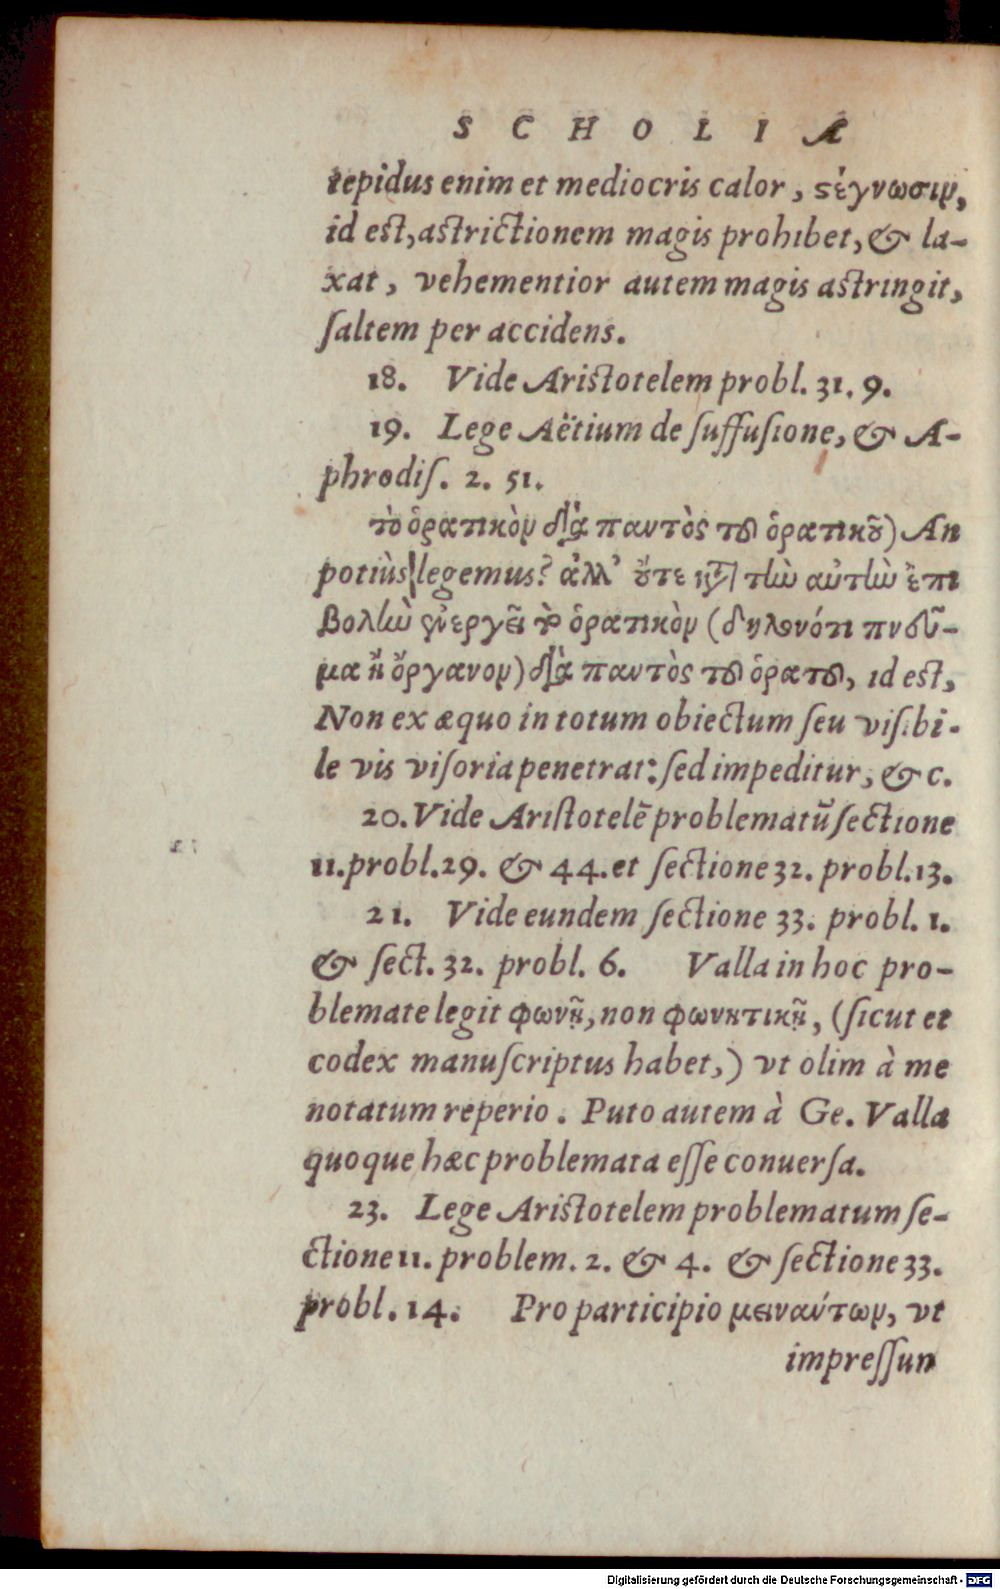 S C H O L I A
tepidus enim et mediocris calor, ςέγνωσιν,
id est, astrictionem magis prohibet, & la-
xat, vehementior autem magis astringit,
ſaltem per accidens.
18. Vide Aristotelem probl. 31. 9.
19. Lege Aëtium de ſuffuſione, & A-
phrodiſ. 2. 51.
τὸ ὁρατικὸν διὰ παντὸς τοῦ ὁρατικοῦ) An
potiùs legemus? ἀλλ' οὔτε κατὰ τὴν αὐτὴν ἐπι
βολὴν ἐνεργεῖ τὸ ὁρατικὸν (δηλονότι πνεῦ-
μα ἢ ὄργανον) διὰ παντὸς τοῦ ὁρατοῦ, id est,
Non ex æquo in totum obiectum ſeu viſibi-
le vis viſoria penetrat: ſed impeditur, & c.
20. Vide Ariſtotelē problematū ſectione
11. probl. 29. & 44. et ſectione 32. probl. 13.
21. Vide eundem ſectione 33. probl. 1.
& ſect. 32. probl. 6. Valla in hoc pro-
blemate legit φωνῇ, non φωνητικῇ, (ſicut et
codex manuſcriptus habet,) vt olim à me
notatum reperio. Puto autem à Ge. Valla
quoque hæc problemata eſſe conuerſa.
23. Lege Aristotelem problematum ſe-
ctione 11. problem. 2. & 4. & ſectione 33.
probl. 14. Pro participio μειναύτων, vt
impreſſun
Digitalisierung gefördert durch die Deutsche Forschungsgemeinschaft - DFG